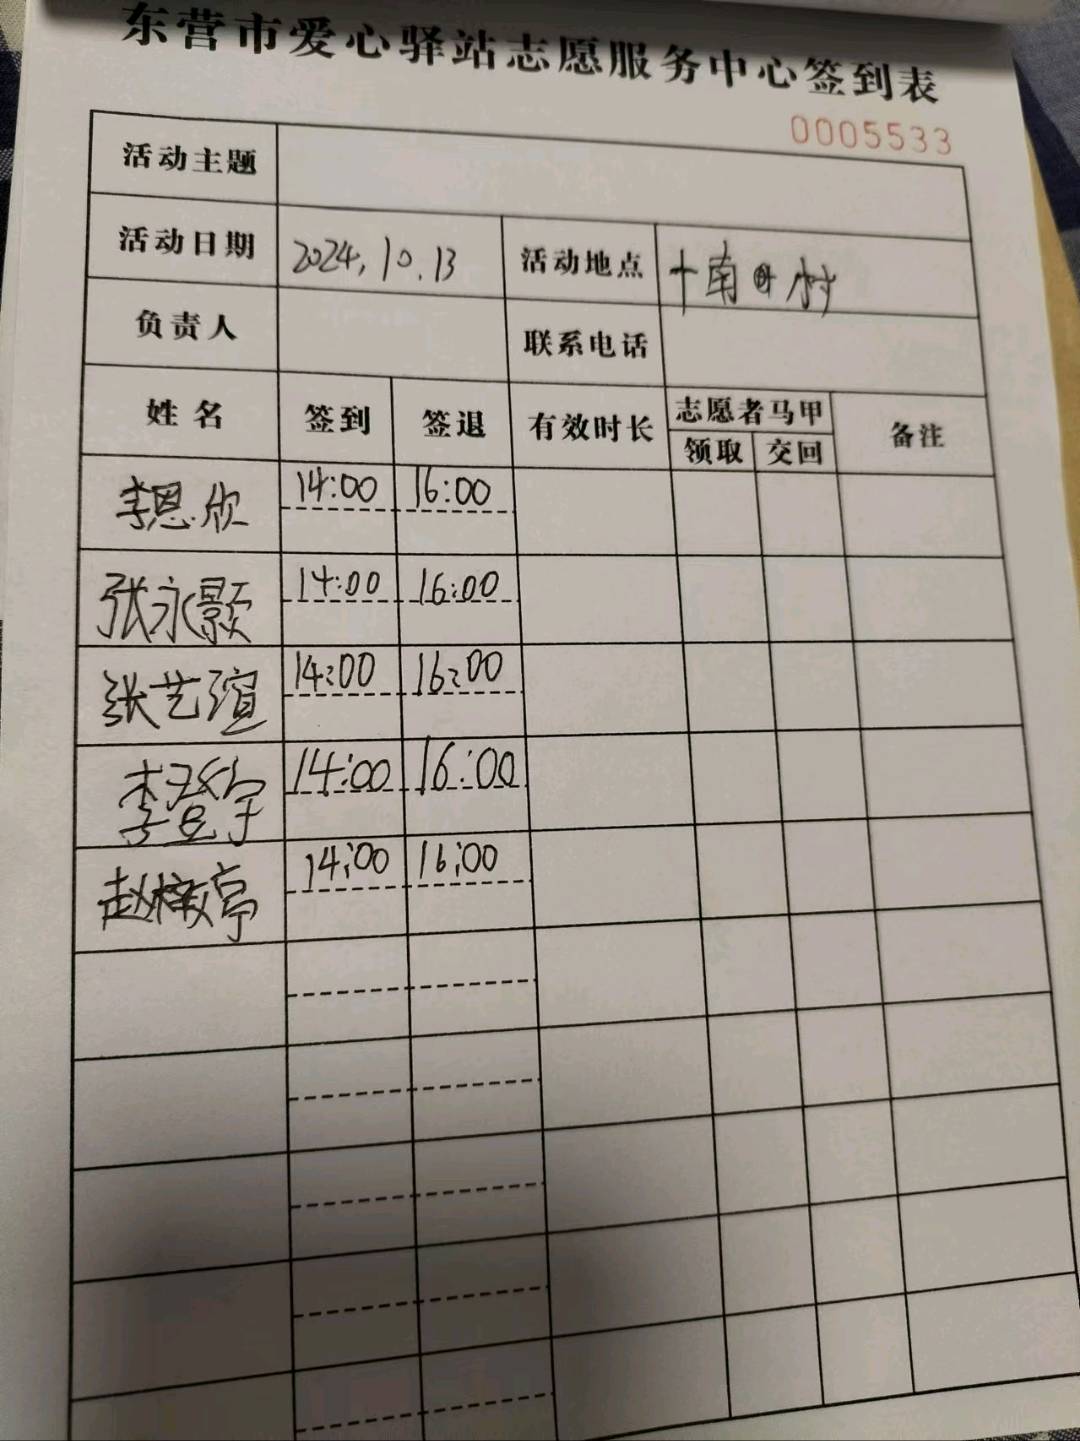 东营市爱心驿站志愿服务中心签到表
0005533
活动主题
活动日期 2024.10.13 活动地点 十南田村
负责人 联系电话
姓名 签到 签退 有效时长 志愿者马甲 备注
领取 交回
李恩欣 14:00 16:00
张永颢 14:00 16:00
张艺瑄 14:00 16:00
李 14:00 16:00
赵梓亭 14:00 16:00